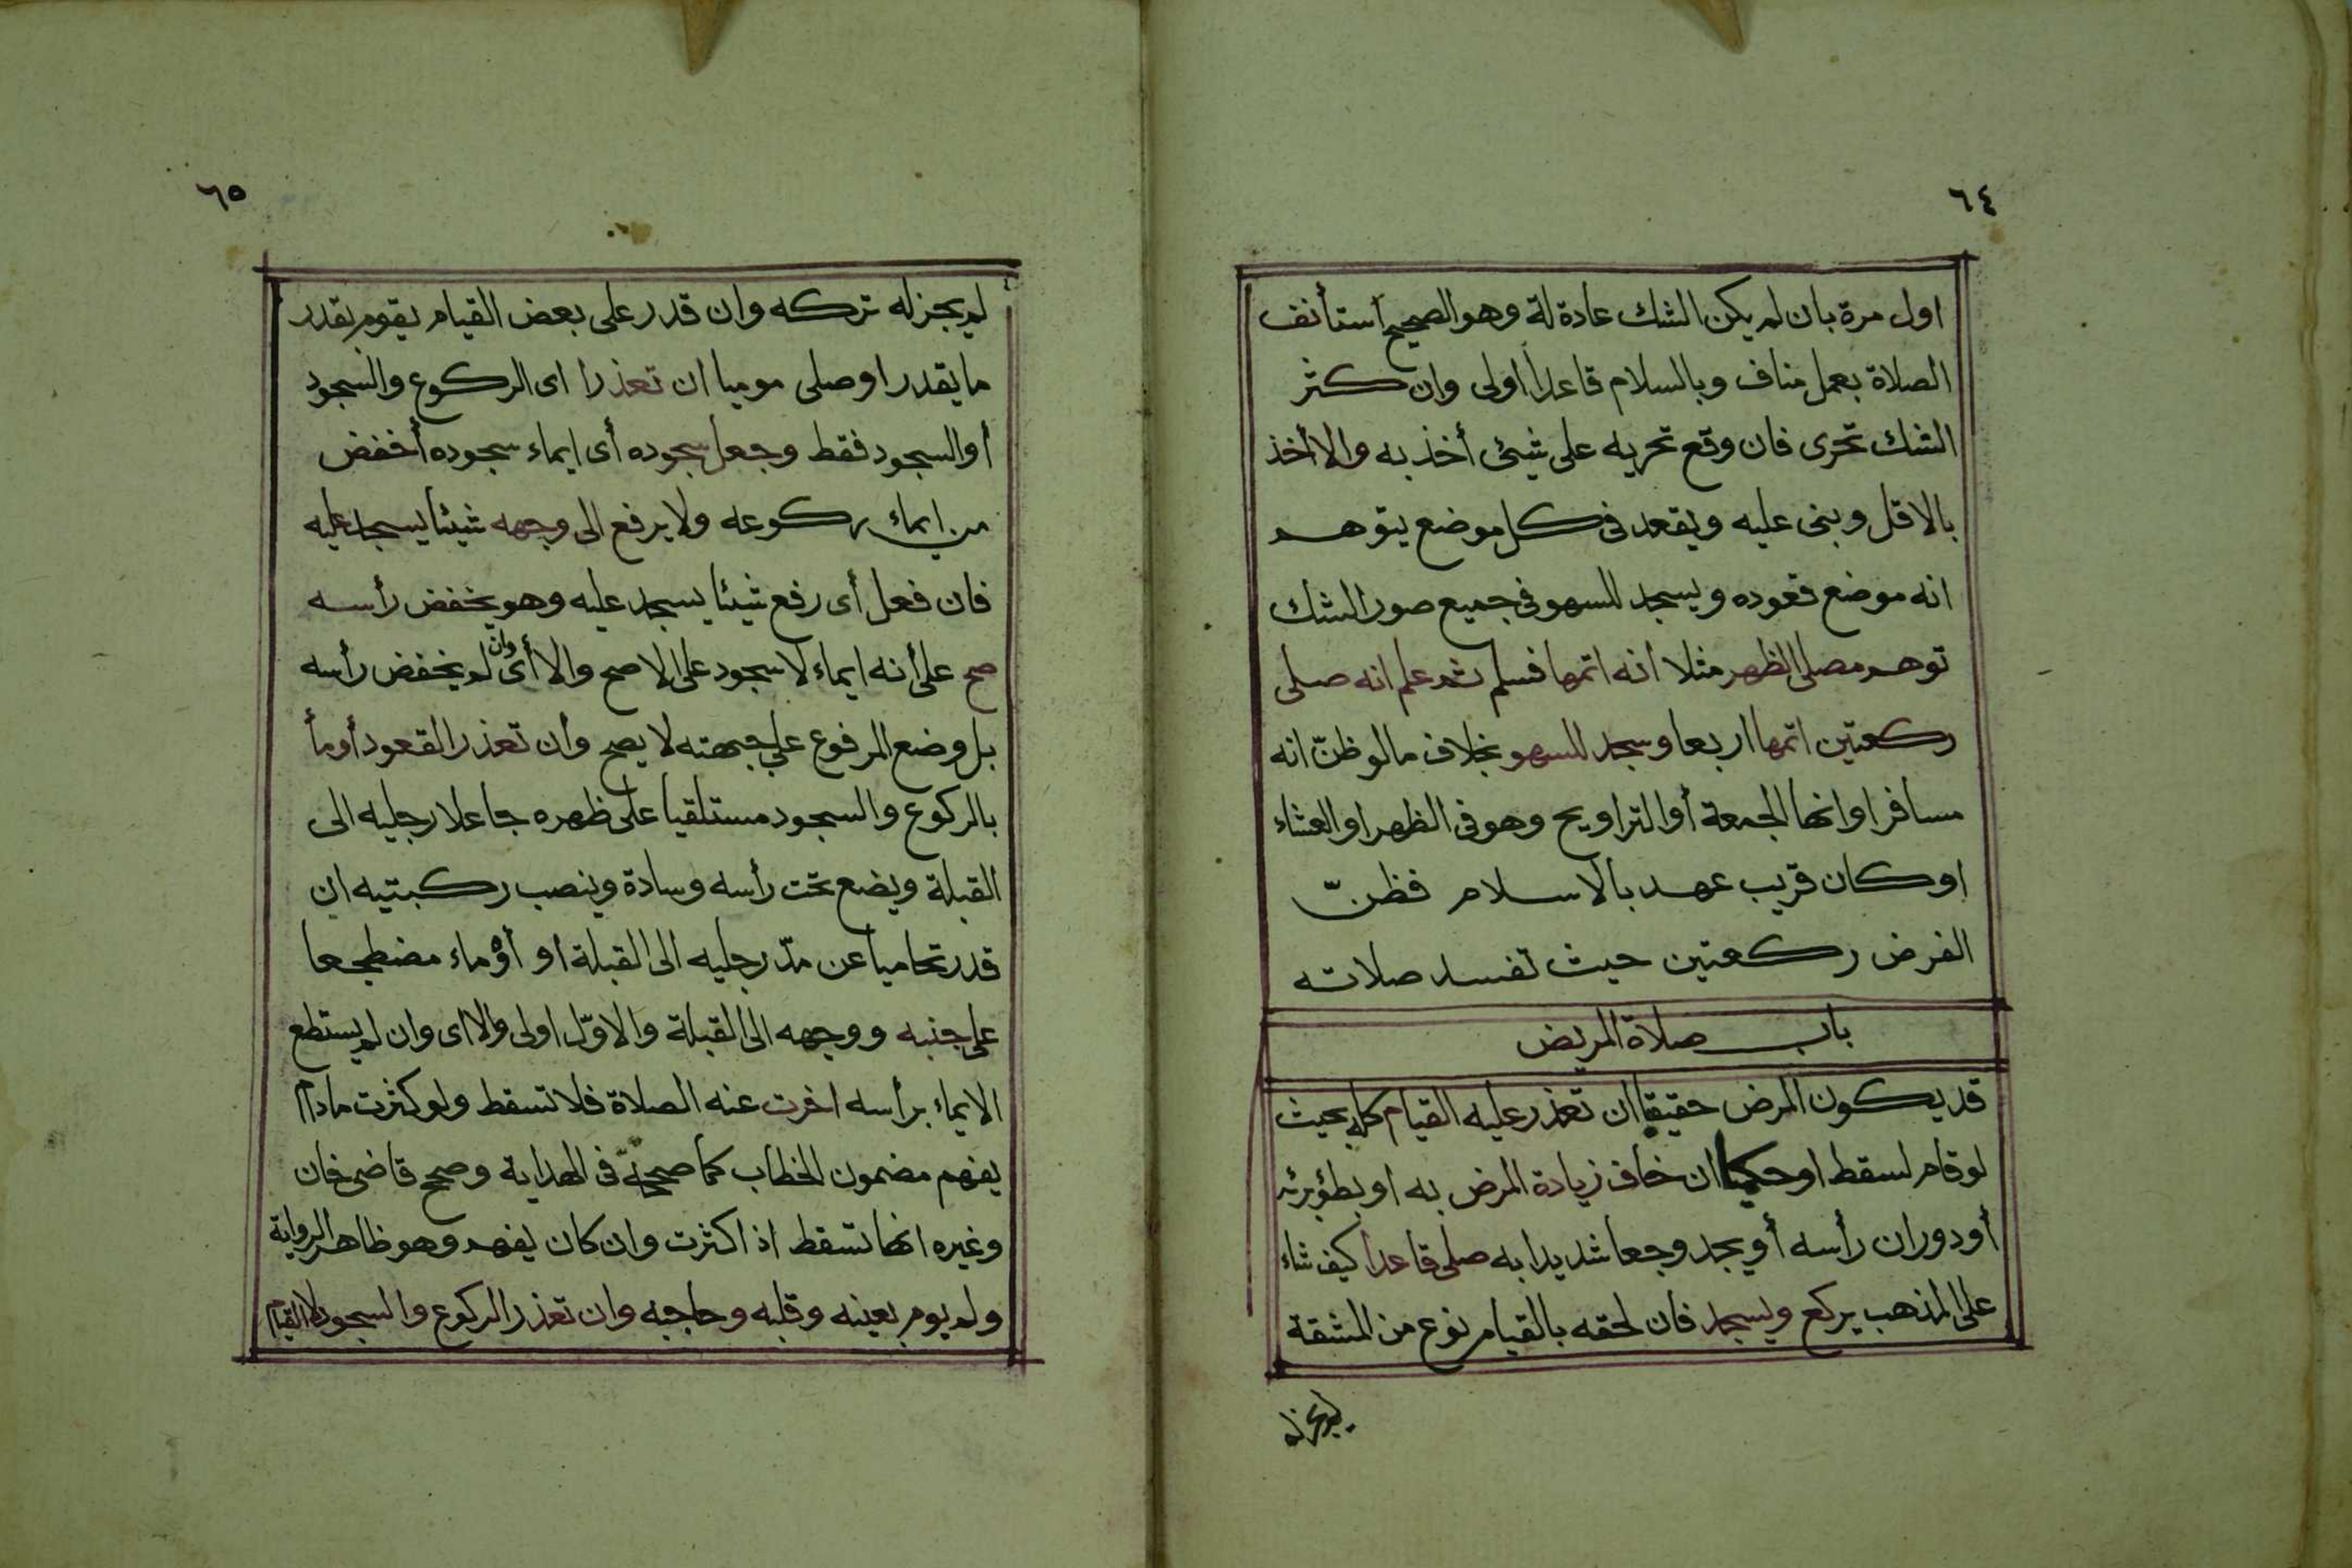 ٦٤
اول مرة بان لم يكن الشك عادة له وهو الصحيح استأنف
الصلاة بعمل مناف وبالسلام قاعدا أولى وان كثر
الشك تحرى فان وقع تحريه على شيئ أخذ به والا أخذ
بالاقل وبنى عليه ويقعد فى كل موضع يتوهم
انه موضع قعوده ويسجد للسهو فى جميع صور الشك
توهم مصلى الظهر مثلا انه اتمها فسلم ثم علم انه صلى
ركعتين اتمها اربعا وسجد للسهو بخلاف ما لو ظنّ انه
مسافر او انها الجمعة أو التراويح وهو فى الظهر او العشاء
او كان قريب عهد بالاسلام فظنّ
الفرض ركعتين حيث تفسد صلاته
باب صلاة المريض
قد يكون المرض حقيقيا ان تعذر عليه القيام كله بحيث
لو قام لسقط او حكميا ان خاف زيادة المرض به او بطؤ برئه
أو دوران رأسه أو يجد وجعا شديدا به صلى قاعدا كيف شاء
على المذهب يركع ويسجد فان لحقه بالقيام نوع من المشقة
لم يجز له
٦٥
لم يجز له تركه وان قدر على بعض القيام يقوم بقدر
ما يقدر او صلى موميا ان تعذرا اى الركوع والسجود
أو السجود فقط وجعل سجوده أى ايماء سجوده أخفض
من ايماء ركوعه ولا يرفع الى وجهه شيئا يسجد عليه
فان فعل أى رفع شيئا يسجد عليه وهو يخفض رأسه
صح على أنه ايماء لا سجود على الاصح والا أى وان لم يخفض رأسه
بل وضع المرفوع على جبهته لا يصح وان تعذر القعود أومأ
بالركوع والسجود مستلقيا على ظهره جاعلا رجليه الى
القبلة ويضع تحت رأسه وسادة وينصب ركبتيه ان
قدر تحاميا عن مدّ رجليه الى القبلة او أوماء مضطجعا
على جنبه ووجهه الى القبلة والاوّل اولى والا اى وان لم يستطع
الايماء برأسه اخرت عنه الصلاة فلا تسقط ولو كثرت مادام
يفهم مضمون الخطاب كما صححه فى الهداية وصحح قاضى خان
وغيره انها تسقط اذا كثرت وان كان يفهم وهو ظاهر الرواية
ولم يوم بعينه وقلبه وحاجبه وان تعذر الركوع والسجود لا القيام